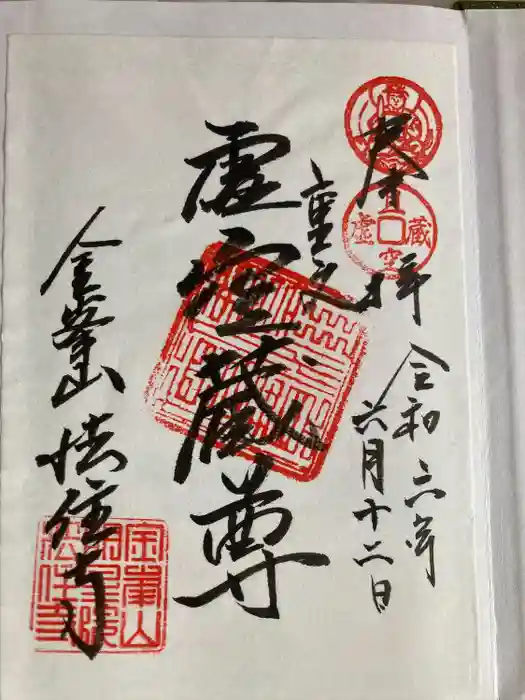 奉拝
虚空蔵
令和六年
六月十二日
重文
虚空蔵尊
金峯山 法住寺
金峯山
法住寺